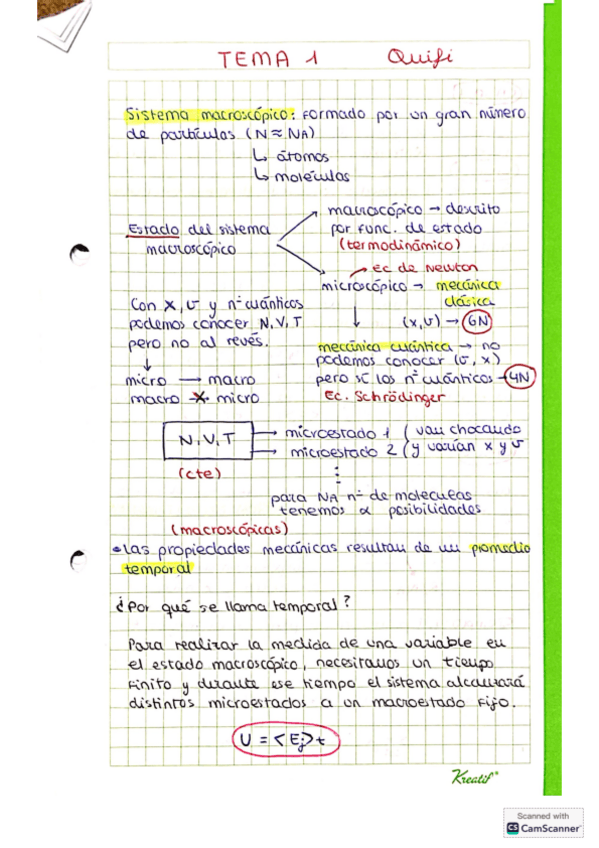 TEMA 1 Quifi
Sistema macroscópico: Formado por un gran número
de partículas (N ≈ NA)
↳ átomos
↳ moléculas
Estado del sistema
macroscópico
macroscópico → descrito
por func. de estado
(termodinámico)
Ec de Newton
microscópico → mecánica
clásica
(x,v) → 6N
Con x, v y nº cuánticos
podemos conocer N, V, T
pero no al revés.
↓
micro → macro
macro -X→ micro
mecánica cuántica → no
podemos conocer (v, x)
pero sí los nº cuánticos → 4N
Ec. Schrödinger
N, V, T
(cte)
→ microestado 1
→ microestado 2
van chocando
y varían x y v
para NA nº de moleculas
tenemos ∝ posibilidades
(macroscópicas)
• Las propiedades mecánicas resultan de un promedio
temporal
¿Por qué se llama temporal?
Para realizar la medida de una variable en
el estado macroscópico, necesitamos un tiempo
finito y durante ese tiempo el sistema alcanzará
distintos microestados a un macroestado fijo.
U = <Ej>t
Kreatif
Scanned with
CS CamScanner